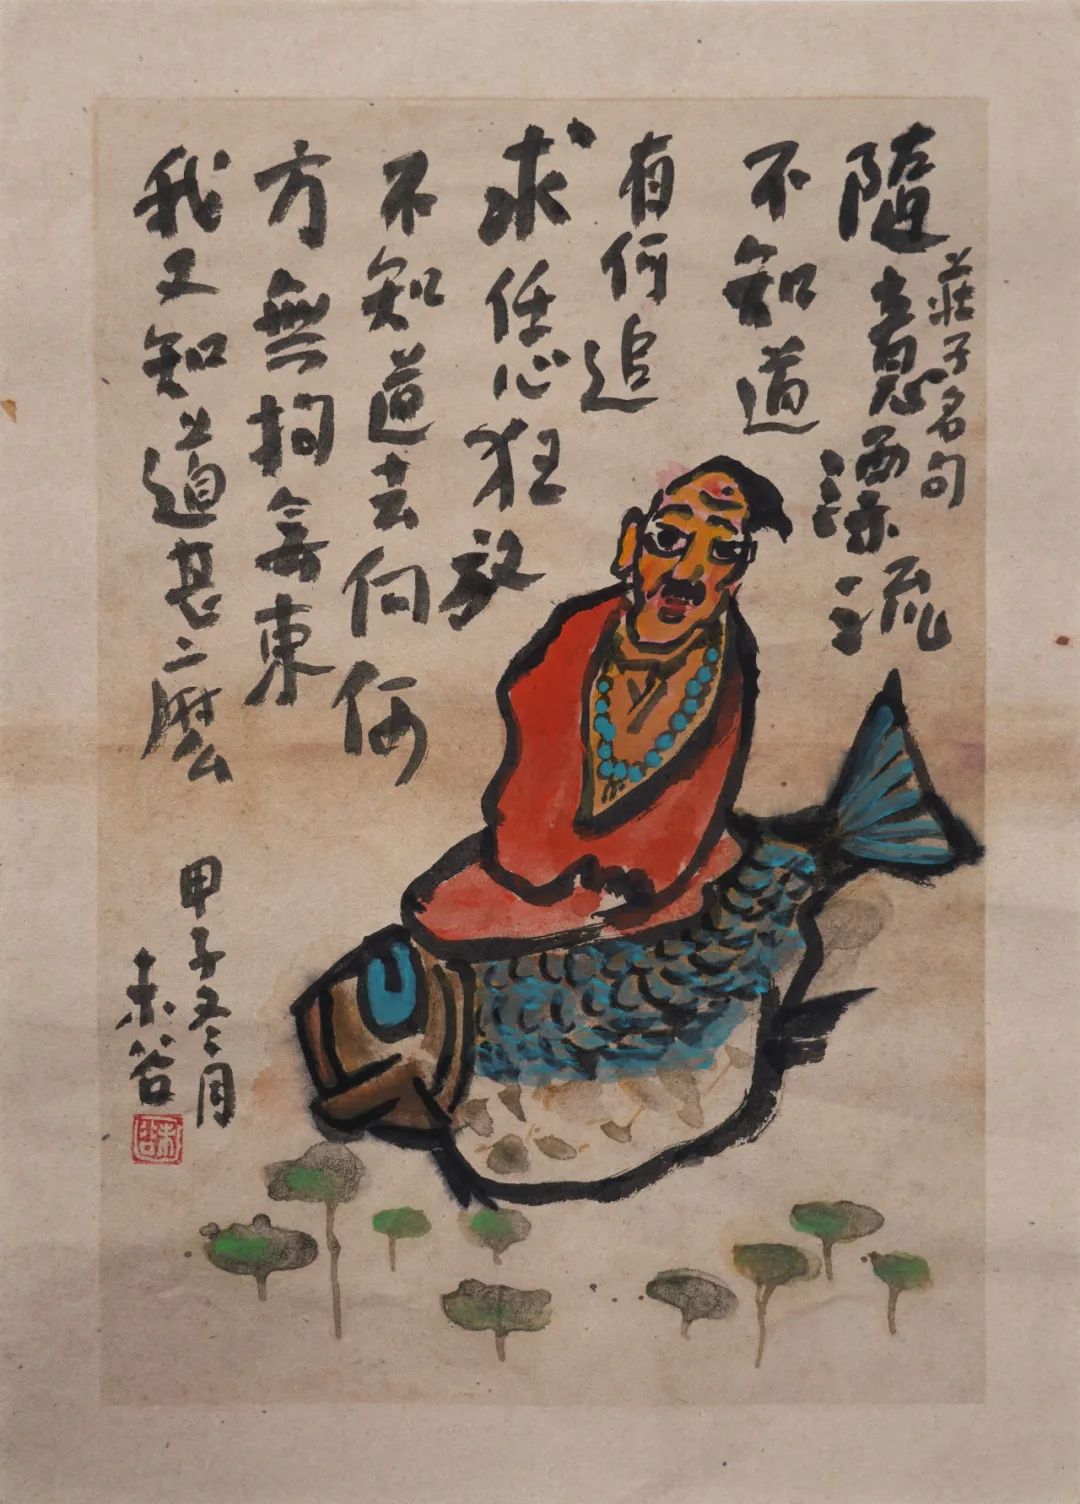 莊子名句
隨意漂流
不知道
有何追
求任心狂放
不知道去向何
方無拘無束
我又知道甚麼
甲子冬月
朱谷